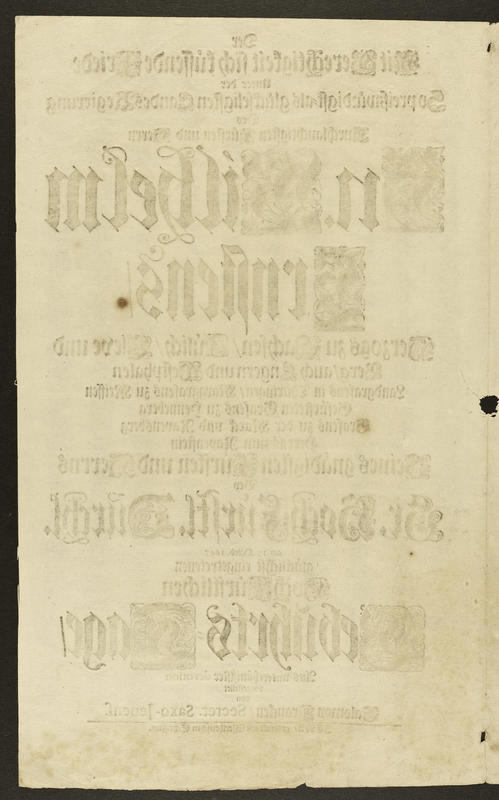 Der
Mit Gerechtigkeit sich küssende Friede
Unter der
So preißwürdigst als glückseligsten Landes Regierung
Des
Durchlauchtigsten Fürsten und Herrn
Hn. Wilhelm
Ernstens/
Herzogs zu Sachsen/ Jülich/ Cleve und
Berg/ auch Engern und Westphalen
Landgrafens in Thüringen/ Marggrafens zu Meissen
Gefürsteten Grafens zu Henneberg
Grafens zu der Marck und Ravensberg
Herrns zum Ravenstein
Seines gnädigsten Fürsten und Herrns
Bey
Sr. Hoch Fürstl. Durchl.
glücklichst eingetretenen
Hoch Fürstlichen
Gebuhrts Tage/
Aus unterthänigster devotion
von
Salomon Francken/ Secret. Saxo-Jenens.